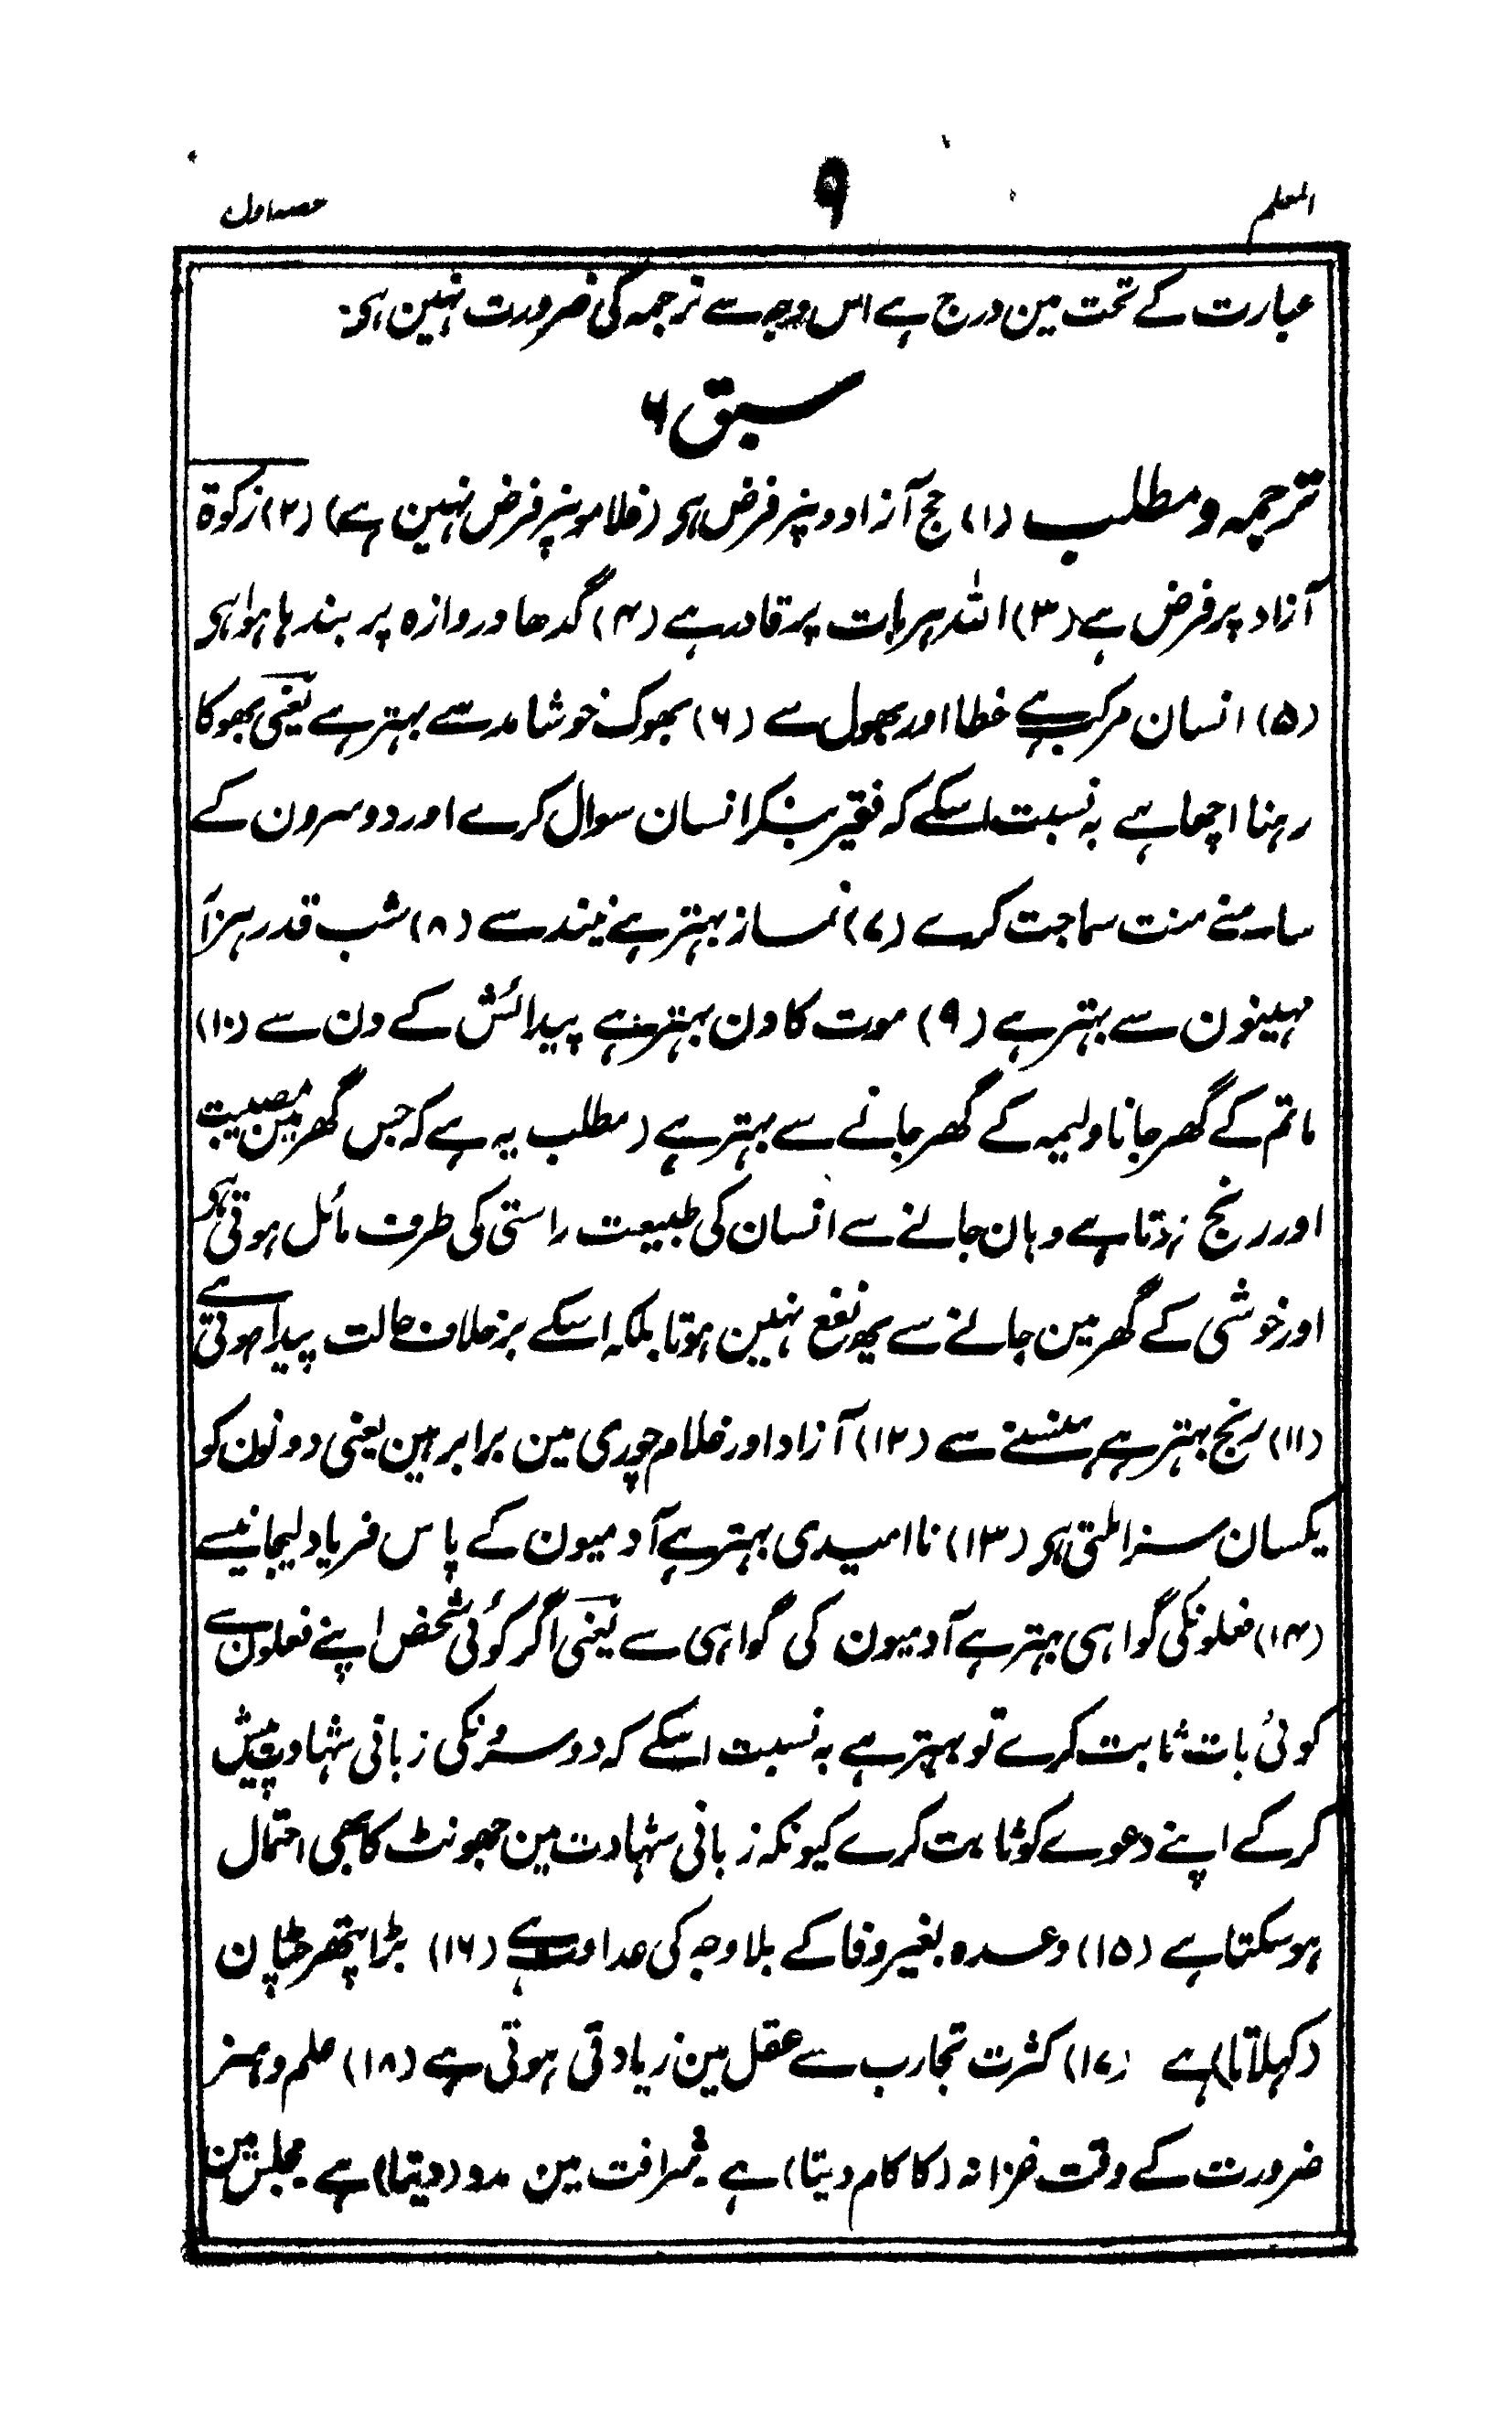 المعلم ۹ حصہ اول
عبارت کے تحت مین درج ہے اس وجہ سے ترجمہ کی ضرورت نہین ہی۔
سبق ۶
ترجمہ و مطلب (۱) حج آزادونپر فرض ہی (غلامونپر فرض نہین ہے) (۲) زکوۃ
آزاد پر فرض ہے (۳) اللہ ہر بات پر قادر ہے (۴) گدھا دروازہ پر بندہا ہوا ہی
(۵) انسان مرکب ہے خطا اور بھول سے (۶) بھوک خوشامد سے بہتر ہے یعنی بھوکا
رہنا اچھا ہے بہ نسبت اسکے کہ فقیر بنکر انسان سوال کرے اور دوسرون کے
سامنے منت سماجت کرے (۷) نماز بہتر ہے نیند سے (۸) شب قدر ہزار
مہینون سے بہتر ہے (۹) موت کا دن بہتر ہے پیدائش کے دن سے (۱۰)
ماتم کے گھر جانا ولیمہ کے گھر جانے سے بہتر ہے (مطلب یہ ہے کہ جس گھر مین مصیبت
اور رنج ہوتا ہے وہان جانے سے انسان کی طبیعت راستی کی طرف مائل ہوتی ہی
اور خوشی کے گھر مین جانے سے کچھ نفع نہین ہوتا بلکہ اسکے برخلاف حالت پیدا ہوتی ہے
(۱۱) رنج بہتر ہے ہنسنے سے (۱۲) آزاد اور غلام چوری مین برابر ہین یعنی دونون کو
یکسان سزا ملتی ہی (۱۳) ناامیدی بہتر ہے آدمیون کے پاس فریاد لیجانیسے
(۱۴) فعلونکی گواہی بہتر ہے آدمیون کی گواہی سے یعنی اگر کوئی شخص اپنے فعلون سے
کوئی بات ثابت کرے تو بہتر ہے بہ نسبت اسکے کہ دوسرونکی زبانی شہادت پیش
کرکے اپنے دعوے کو ثابت کرے کیونکہ زبانی شہادت مین جھونٹ کا بھی احتمال
ہوسکتا ہے (۱۵) وعدہ بغیر وفا کے بلا وجہ کی عداوت ہے (۱۶) بڑا پتھر چٹان
(کہلاتا) ہے (۱۷) کثرت تجارب سے عقل مین زیادتی ہوتی ہے (۱۸) علم و ہنر
ضرورت کے وقت خزانہ (کا کام دیتا) ہے۔ شرافت مین مدد (دیتا) ہے۔ مجلس مین